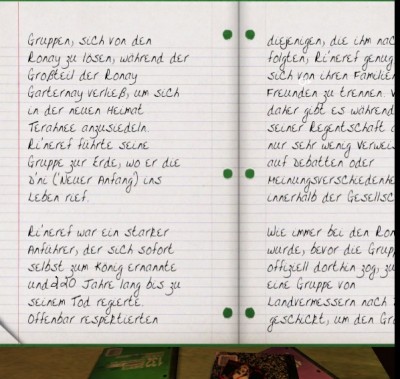 Gruppen, sich von den
Ronay zu lösen, während der
Großteil der Ronay
Garternay verließ, um sich
in der neuen Heimat
Terahnee anzusiedeln.
Ri'neref führte seine
Gruppe zur Erde, wo er die
D'ni ('Neuer Anfang') ins
Leben rief.
Ri'neref war ein starker
Anführer, der sich sofort
selbst zum König ernannte
und 220 Jahre lang bis zu
seinem Tod regierte.
Offenbar respektierten
diejenigen, die ihm nac
folgten, Ri'neref genug
sich von ihren Familien
Freunden zu trennen.
daher gibt es während
seiner Regentschaft
nur sehr wenig Verweis
auf Debatten oder
Meinungsverschiedenhe
innerhalb der Gesellsc
Wie immer bei den Ron
wurde, bevor die Grupp
offiziell dorthin zog, zu
eine Gruppe von
Landvermessern nach
geschickt, um den Gr